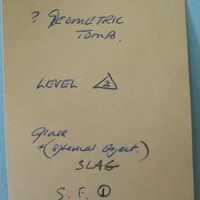 ? GEOMETRIC
TOMB.
LEVEL 2
Glass
+ (Spherical Object)
SLAG
S.F. 1